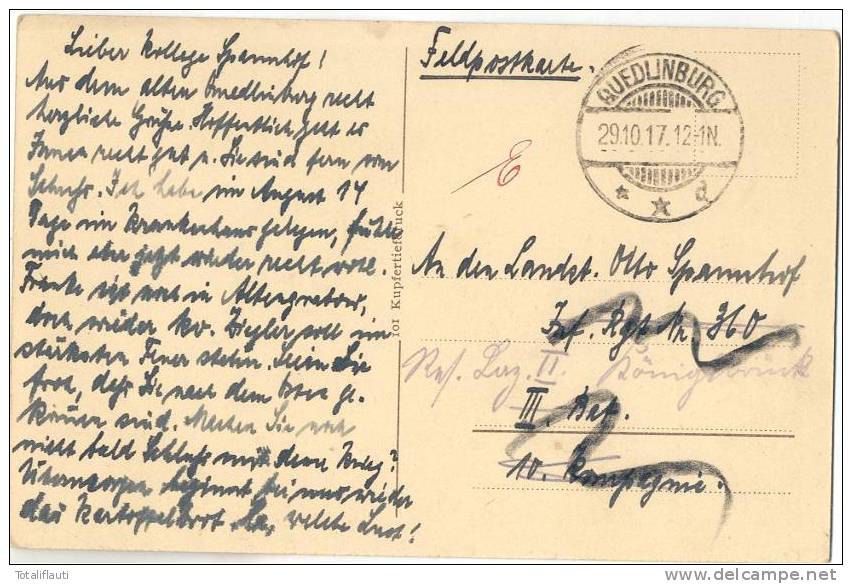 Lieber Kollege Spannhof!
Aus dem alten Quedlinburg recht
herzliche Grüße. Hoffentlich geht es
Ihnen recht gut u. Sie sind fern vom
Schuss. Ich habe im August 14
Tage im Krankenhaus gelegen, fühle
mich aber jetzt wieder recht wohl.
Franke ist noch in Altengrabow,
doch wieder kv. Ziegler soll im
stärksten Feuer stehen. Seien Sie
froh, daß Sie nach dem Osten ge-
kommen sind. Machen Sie noch
nicht bald Schluss mit dem Krieg?
Übermorgen beginnt bei uns wieder
das Kartoffelbrot. Na, welche Lust!
for Kupfertiefdruck
Feldpostkarte.
QUEDLINBURG
29.10.17.12-1N.
* * d
E
An den Landst. Otto Spannhof
Inf. Rgt Nr. 360
Res. Laz. II. Königsbrück
III. Bat.
10. Kompagnie.
Totaliflauti
delcampe.net